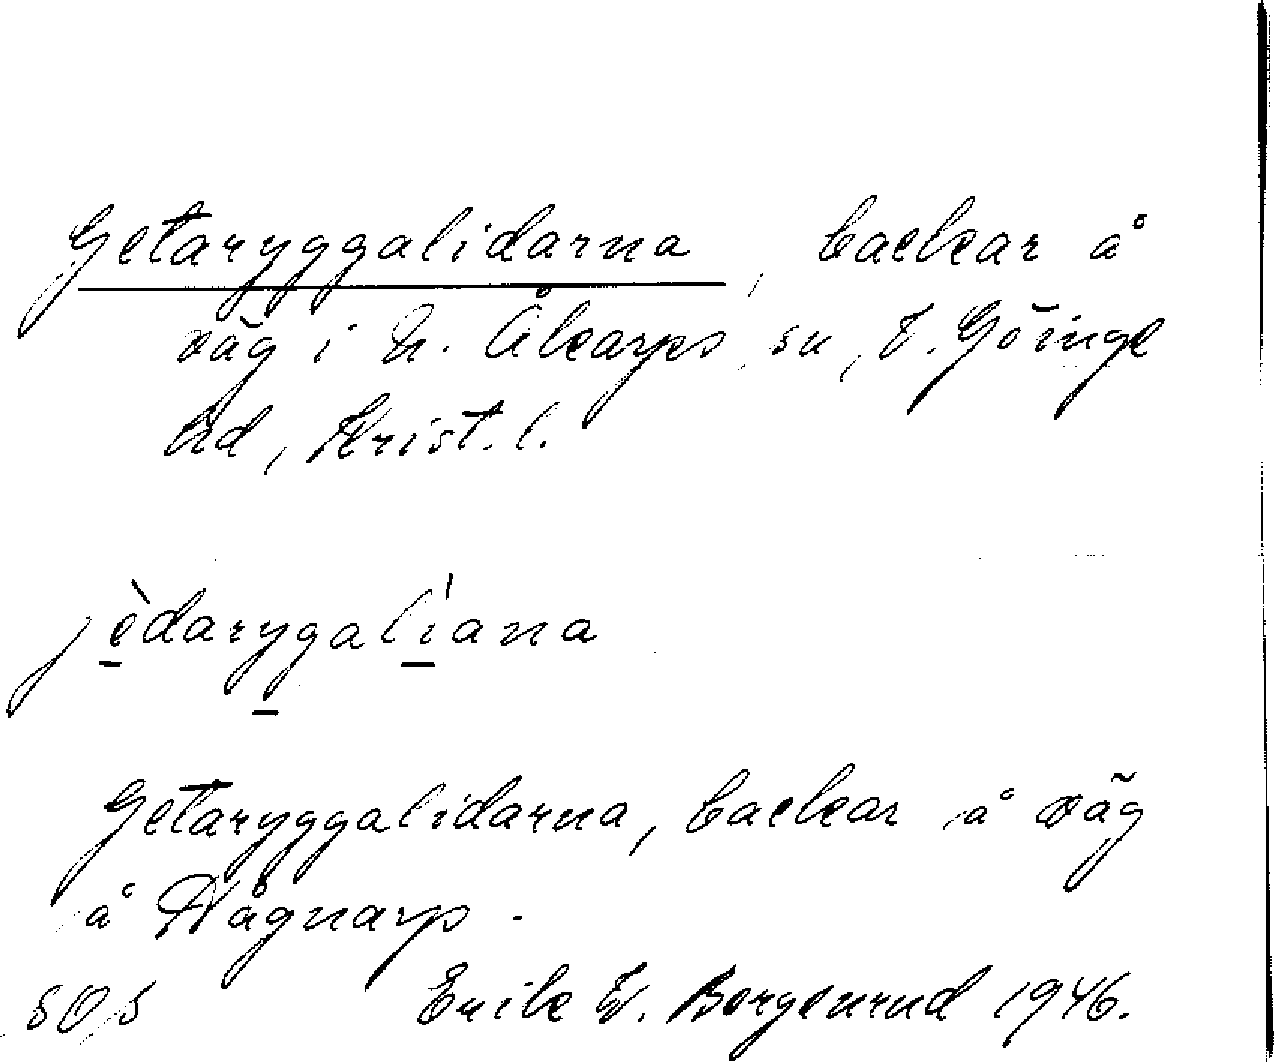 Getaryggalidarna, backar å
väg i N. Åkarps sn, V. Göinge
hd, Krist. l.
jèdarygalìana
Getaryggalidarna, backar å väg
å Någnarp.
Erik W. Borgenrud 1946.